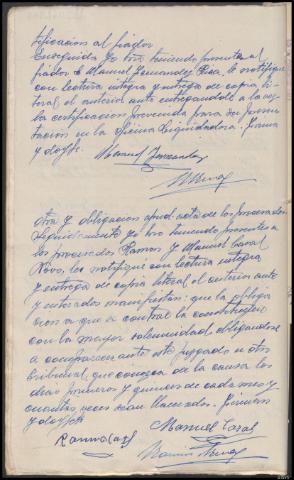 tificacion al fiador
Enseguida yo teniendo presente al
fiador D. Manuel Fernandez Rica, le notifiqué
con lectura integra y entrega de copia li-
teral el anterior auto entregandole a la vez
la certificacion prevenida para su presen-
tacion en la oficina liquidadora. Firma
y doy fe.
Manuel Fernandez
Otra y obligacion apud acta de los procesados
Seguidamente yo teniendo presentes a
los procesados Ramon y Manuel Casal
Novo, les notifiqué con lectura integra
y entrega de copia literal el anterior auto
y enterados manifestan: que la obliga
cion a que el contral la constituyen
con la mayor solemnidad obligandose
a comparecer ante este juzgado u otro
tribunal que conozca de la causa los
dias primeros y quince de cada mes y
cuantas veces sean llamados. Firman
y doy fe.
Manuel Casal
Ramon Casal